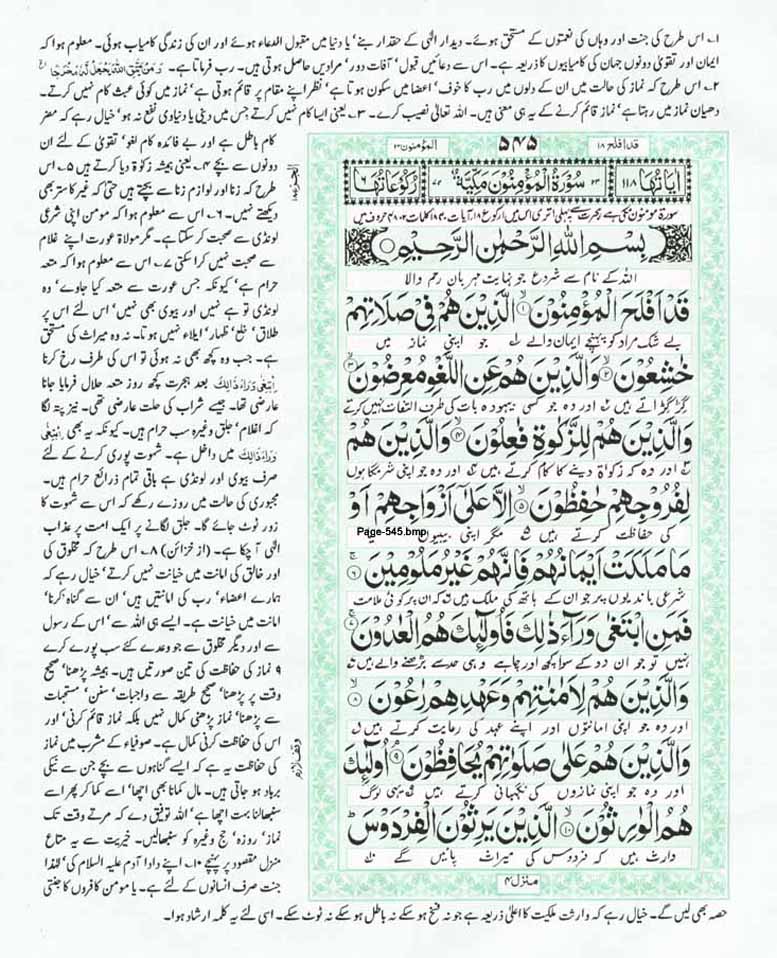 ۱۔ اس طرح کی جنت اور وہاں کی نعمتوں کے مستحق ہوئے۔ دیدار الٰہی کے حقدار بنے‘ یا دنیا میں مقبول الدعاء ہوئے اور ان کی زندگی کامیاب ہوئی۔ معلوم ہوا کہ
ایمان اور تقویٰ دونوں جہان کی کامیابیوں کا ذریعہ ہے۔ اس سے دعائیں قبول‘ آفات دور‘ مرادیں حاصل ہوتی ہیں۔ رب فرماتا ہے۔ وَمَنْ يَّتَّقِ اللهَ يَجْعَلْ لَّهُ مَخْرَجًا
۲۔ اس طرح کہ نماز کی حالت میں ان کے دلوں میں رب کا خوف‘ اعضا میں سکون ہوتا ہے‘ نظر اپنے مقام پر قائم ہوتی ہے‘ نماز میں کوئی عبث کام نہیں کرتے۔
دھیان نماز میں رہتا ہے‘ نماز قائم کرنے کے یہ ہی معنی ہیں۔ اللہ تعالیٰ نصیب کرے۔ ۳۔ یعنی ایسا کام نہیں کرتے جس میں دینی یا دنیاوی نفع نہ ہو‘ خیال رہے کہ مضر
کام باطل ہے اور بے فائدہ کام لغو‘ تقویٰ کے لئے ان
دونوں سے بچے ۴۔ یعنی ہمیشہ زکوٰۃ دیا کرتے ہیں ۵۔ اس
طرح کہ زنا اور لوازم زنا سے بچتے ہیں حتیٰ کہ غیر کا ستر بھی
دیکھتے نہیں۔ ۶۔ اس سے معلوم ہوا کہ مومن اپنی شرعی
لونڈی سے صحبت کر سکتا ہے۔ مگر مولاۃ عورت اپنے غلام
سے صحبت نہیں کرا سکتی ۷۔ اس سے معلوم ہوا کہ متعہ
حرام ہے‘ کیونکہ جس عورت سے متعہ کیا جاوے‘ وہ
لونڈی تو ہے نہیں اور بیوی بھی نہیں‘ اس لئے اس پر
طلاق‘ خلع‘ ظہار‘ ایلاء نہیں ہوتا۔ نہ وہ میراث کی مستحق
ہے۔ جب وہ کچھ بھی نہ ہوئی تو اس کی طرف رخ کرنا
اِبْتَغٰى وَرَآءَ ذٰلِكَ بعد ہجرت کچھ روز متعہ حلال فرمایا جانا
عارضی تھا۔ جیسے شراب کی حلت عارضی تھی۔ نیز پتہ لگا
کہ اغلام‘ جلق وغیرہ سب حرام ہیں۔ کیونکہ یہ بھی اِبْتَغٰى
وَرَآءَ ذٰلِكَ میں داخل ہے۔ شہوت پوری کرنے کے لئے
صرف بیوی اور لونڈی ہے باقی تمام ذرائع حرام ہیں۔
مجبوری کی حالت میں روزے رکھے کہ اس سے شہوت کا
زور ٹوٹ جائے گا۔ جلق لگانے پر ایک امت پر عذاب
الٰہی آ چکا ہے۔ (از خزائن) ۸۔ اس طرح کہ مخلوق کی
اور خالق کی امانت میں خیانت نہیں کرتے‘ خیال رہے کہ
ہمارے اعضاء‘ رب کی امانتیں ہیں‘ ان سے گناہ کرنا‘
امانت میں خیانت ہے۔ ایسے ہی اللہ سے‘ اس کے رسول
سے اور دیگر مخلوق سے جو وعدے کئے سب پورے کرے
۹۔ نماز کی حفاظت کی تین صورتیں ہیں۔ ہمیشہ پڑھنا‘ صحیح
وقت پر پڑھنا‘ صحیح طریقہ سے واجبات‘ سنن‘ مستحبات
سے پڑھنا‘ نماز پڑھنی کمال نہیں بلکہ نماز قائم کرنی‘ اور
اس کی حفاظت کرنی کمال ہے۔ صوفیاء کے مشرب میں نماز
کی حفاظت یہ ہے کہ ایسے گناہوں سے بچے جن سے نیکی
برباد ہو جاتی ہیں۔ مال کمانا بھی اچھا‘ اسے کما کر پھر اسے
سنبھالنا بہت اچھا ہے‘ اللہ توفیق دے کہ مرتے وقت تک
نماز‘ روزہ‘ حج وغیرہ کو سنبھالیں۔ خیریت سے یہ متاع
منزل مقصود پر پہنچے ۱۰۔ اپنے دادا آدم علیہ السلام کی‘ لہٰذا
جنت صرف انسانوں کے لئے ہے۔ یا مومن کافروں کا جنتی
حصہ بھی لیں گے۔ خیال رہے کہ وارثت ملکیت کا اعلیٰ ذریعہ ہے جو نہ فسخ ہو سکے نہ باطل ہو سکے نہ ٹوٹ سکے۔ اسی لئے یہ کلمہ ارشاد ہوا۔
قد افلح ۱۸
۵۴۵
المؤمنون ۲۳
اٰيَاتُهَا ۱۱۸
۲۳ سُوْرَةُ الْمُؤْمِنُوْنَ مَكِّيَّةٌ ۷۴
رُكُوْعَاتُهَا ۶
بِسْمِ اللهِ الرَّحْمٰنِ الرَّحِيْمِ
اللہ کے نام سے شروع جو نہایت مہربان رحم والا
قَدْ اَفْلَحَ الْمُؤْمِنُوْنَ ۱ الَّذِيْنَ هُمْ فِيْ صَلَاتِهِمْ
بے شک مراد کو پہنچے ایمان والے ۱ جو اپنی نماز میں
خٰشِعُوْنَ ۲ وَالَّذِيْنَ هُمْ عَنِ اللَّغْوِ مُعْرِضُوْنَ ۳
گڑگڑاتے ہیں ۲ اور وہ جو کسی بیہودہ بات کی طرف التفات نہیں کرتے
وَالَّذِيْنَ هُمْ لِلزَّكٰوةِ فٰعِلُوْنَ ۴ وَالَّذِيْنَ هُمْ
۳ اور وہ کہ زکوٰۃ دینے کا کام کرتے ہیں ۴ اور وہ جو اپنی شرمگاہوں
لِفُرُوْجِهِمْ حٰفِظُوْنَ ۵ اِلَّا عَلٰٓى اَزْوَاجِهِمْ اَوْ
کی حفاظت کرتے ہیں ۵ مگر اپنی بیبیوں یا
Page-545.bmp
مَا مَلَكَتْ اَيْمَانُهُمْ فَاِنَّهُمْ غَيْرُ مَلُوْمِيْنَ ۶
شرعی باندیوں پر جو ان کے ہاتھ کی ملک ہیں ۶ کہ ان پر کوئی ملامت
فَمَنِ ابْتَغٰى وَرَآءَ ذٰلِكَ فَاُولٰٓئِكَ هُمُ الْعٰدُوْنَ ۷
نہیں تو جو ان دو کے سوا کچھ اور چاہے وہی حد سے بڑھنے والے ہیں ۷
وَالَّذِيْنَ هُمْ لِاَمٰنٰتِهِمْ وَعَهْدِهِمْ رٰعُوْنَ ۸
اور وہ جو اپنی امانتوں اور اپنے عہد کی رعایت کرتے ہیں ۸
وَالَّذِيْنَ هُمْ عَلٰى صَلَوٰتِهِمْ يُحَافِظُوْنَ ۹ اُولٰٓئِكَ
اور وہ جو اپنی نمازوں کی نگہبانی کرتے ہیں ۹ یہی لوگ
هُمُ الْوٰرِثُوْنَ ۱۰ الَّذِيْنَ يَرِثُوْنَ الْفِرْدَوْسَ ط
وارث ہیں کہ فردوس کی میراث پائیں گے ۱۰
منزل ۴
الجزء ۱۸
وقف لازم